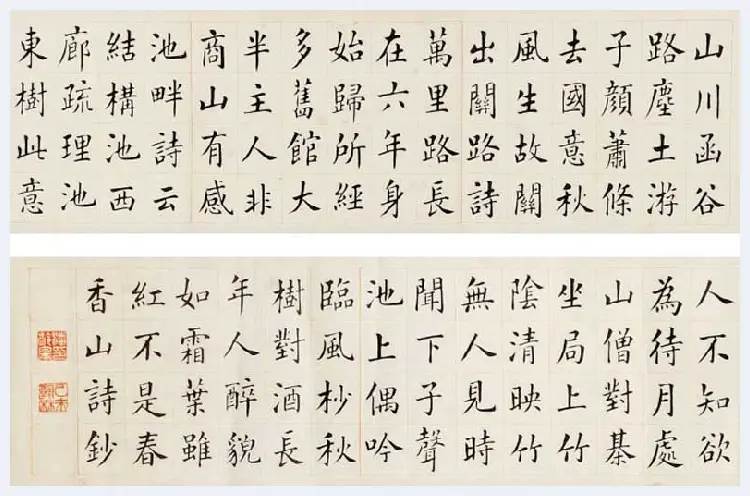 山川函谷
路塵土游
子顏蕭條
去國意秋
風生故關
出關路詩
萬里路長
在六年身
始歸所經
多舊館大
半主人非
商山有感
池畔詩云
結構池西
廊疏理池
東樹此意
人不知欲
為待月處
山僧對棊
坐局上竹
陰清映竹
無人見時
聞下子聲
池上偶吟
臨風杪秋
樹對酒長
年人醉貌
如霜葉雖
紅不是春
香山詩鈔